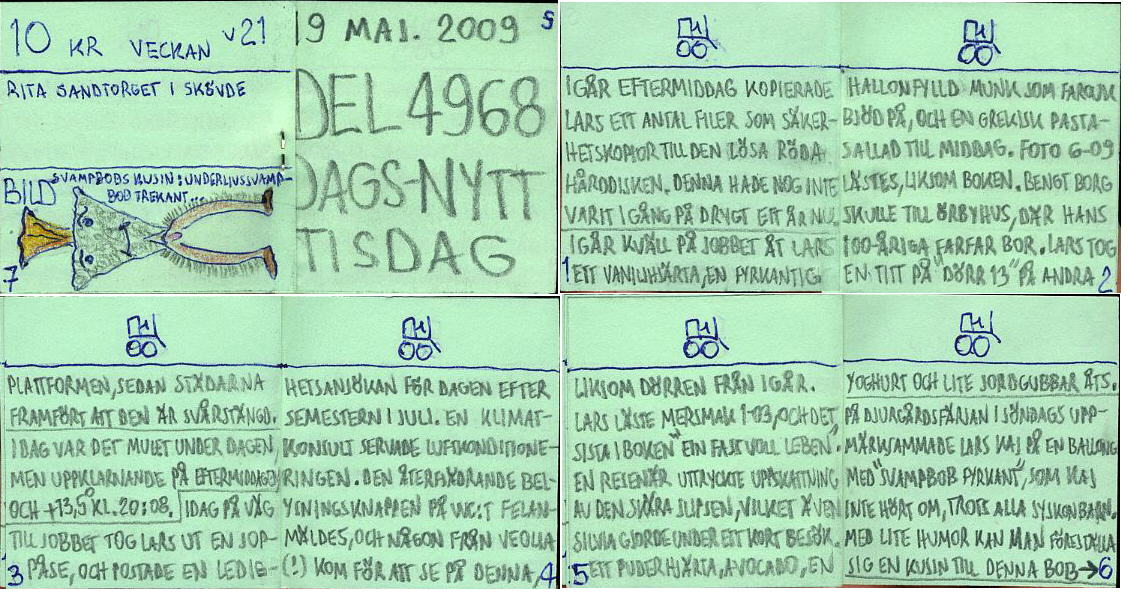 10 KR VECKAN V21
RITA SANDTORGET I SKÖVDE
BILD SVAMPBOBS KUSIN: UNDERLJUSSVAMP-
BOB TREKANT...
7
19 MAJ. 2009 §
DEL 4968
DAGS-NYTT
TISDAG
IGÅR EFTERMIDDAG KOPIERADE
LARS ETT ANTAL FILER SOM SÄKER-
HETSKOPIOR TILL DEN LÖSA RÖDA
HÅRDDISKEN. DENNA HADE NOG INTE
VARIT IGÅNG PÅ DRYGT ETT ÅR NU.
IGÅR KVÄLL PÅ JOBBET ÅT LARS
1 ETT VANILJHJÄRTA, EN FYRKANTIG
HALLONFYLLD MUNK SOM FAROUK
BJÖD PÅ, OCH EN GREKISK PASTA-
SALLAD TILL MIDDAG. FOTO 6-09
LÄSTES, LIKSOM BOKEN. BENGT BORG
SKULLE TILL ÖRBYHUS, DÄR HANS
100-ÅRIGA FARFAR BOR. LARS TOG
EN TITT PÅ "DÖRR 13" PÅ ANDRA 2
PLATTFORMEN, SEDAN STÄDARNA
FRAMFÖRT ATT DEN ÄR SVÅRSTÄNGD.
IDAG VAR DET MULET UNDER DAGEN,
MEN UPPKLARNANDE PÅ EFTERMIDDAGEN
OCH +13,5° KL. 20:08. IDAG PÅ VÄG
TILL JOBBET TOG LARS UT EN SOP-
3 PÅSE, OCH POSTADE EN LEDIG-
HETSANSÖKAN FÖR DAGEN EFTER
SEMESTERN I JULI. EN KLIMAT-
KONSULT SERVADE LUFTKONDITIONE-
RINGEN. DEN ÅTERFJÄDRANDE BEL-
YSNINGSKNAPPEN PÅ WC:T FELAN-
MÄLDES, OCH NÅGON FRÅN VEOLIA
(!) KOM FÖR ATT SE PÅ DENNA, 4
LIKSOM DÖRREN FRÅN IGÅR.
LARS LÄSTE MERSMAK 1-03, OCH DET
SISTA I BOKEN "EIN FAST VOLL LEBEN".
EN RESENÄR UTTRYCKTE UPPSKATTNING
AV DEN SKÄRA SLIPSEN, VILKET ÄVEN
SILVIA GJORDE UNDER ETT KORT BESÖK.
5 ETT PUDERHJÄRTA, AVOCADO, EN
YOGHURT OCH LITE JORDGUBBAR ÄTS.
PÅ DJURGÅRDSFÄRJAN I SÖNDAGS UPP-
MÄRKSAMMADE LARS KAJ PÅ EN BALLONG
MED "SVAMPBOB FYRKANT", SOM KAJ
INTE HÖRT OM, TROTS ALLA SYSKONBARN.
MED LITE HUMOR KAN MAN FÖRESTÄLLA
SIG EN KUSIN TILL DENNA BOB → 6